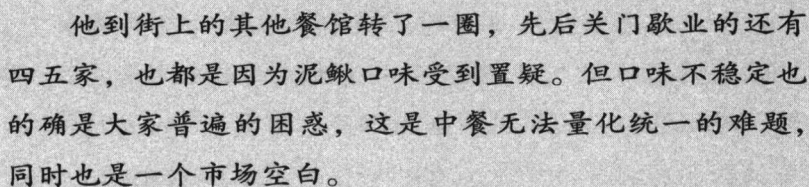 他到街上的其他餐馆转了一圈，先后关门歇业的还有
四五家，也都是因为泥鳅口味受到置疑。但口味不稳定也
的确是大家普遍的困惑，这是中餐无法量化统一的难题，
同时也是一个市场空白。